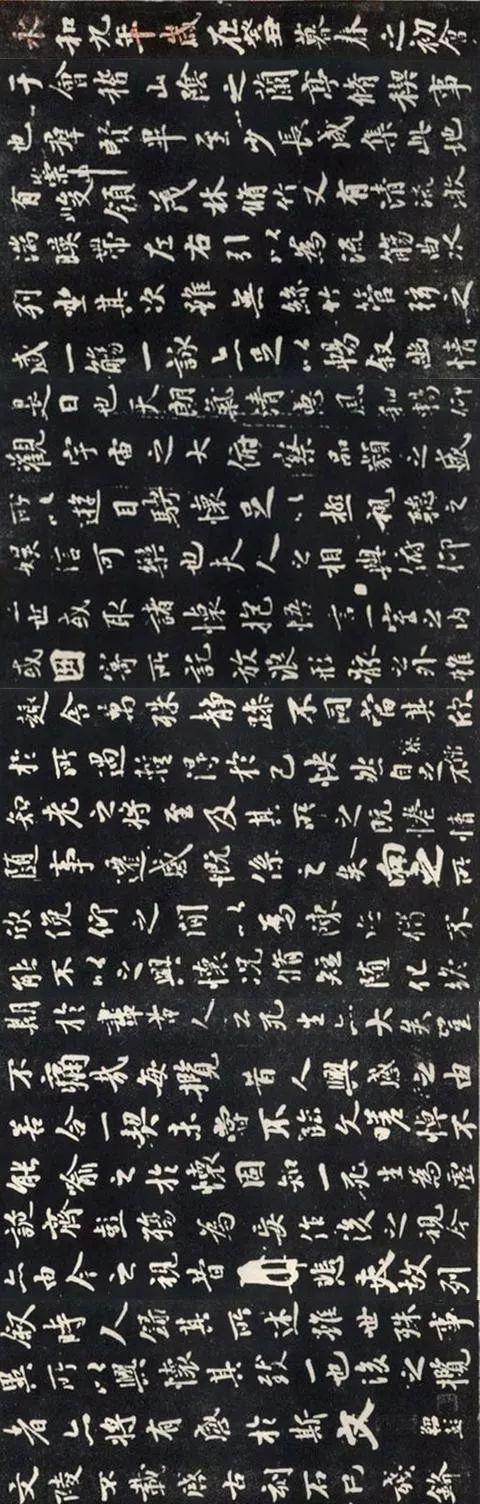 永和九年歲在癸丑暮春之初會
于會稽山陰之蘭亭脩稧事
也羣賢畢至少長咸集此地
有崇山峻領茂林脩竹又有清流激
湍暎帶左右引以為流觴曲水
列坐其次雖無絲竹管弦之
盛一觴一詠亦足以暢敘幽情
是日也天朗氣清惠風和暢仰
觀宇宙之大俯察品類之盛
所以遊目騁懷足以極視聽之
娛信可樂也夫人之相與俯仰
一世或取諸懷抱悟言一室之內
或因寄所託放浪形骸之外雖
趣舍萬殊靜躁不同當其欣
於所遇蹔得於己怏然自足不
知老之將至及其所之既惓情
隨事遷感慨係之矣向之所
欣俛仰之間以為陳迹猶不
能不以之興懷況脩短隨化終
期於盡古人云死生亦大矣豈
不痛哉每攬昔人興感之由
若合一契未嘗不臨文嗟悼不
能喻之於懷固知一死生為虛
誕齊彭殤為妄作後之視今
亦由今之視昔悲夫故列
敘時人錄其所述雖世殊事
異所以興懷其致一也後之攬
者亦將有感於斯文
文陵不載古刻石